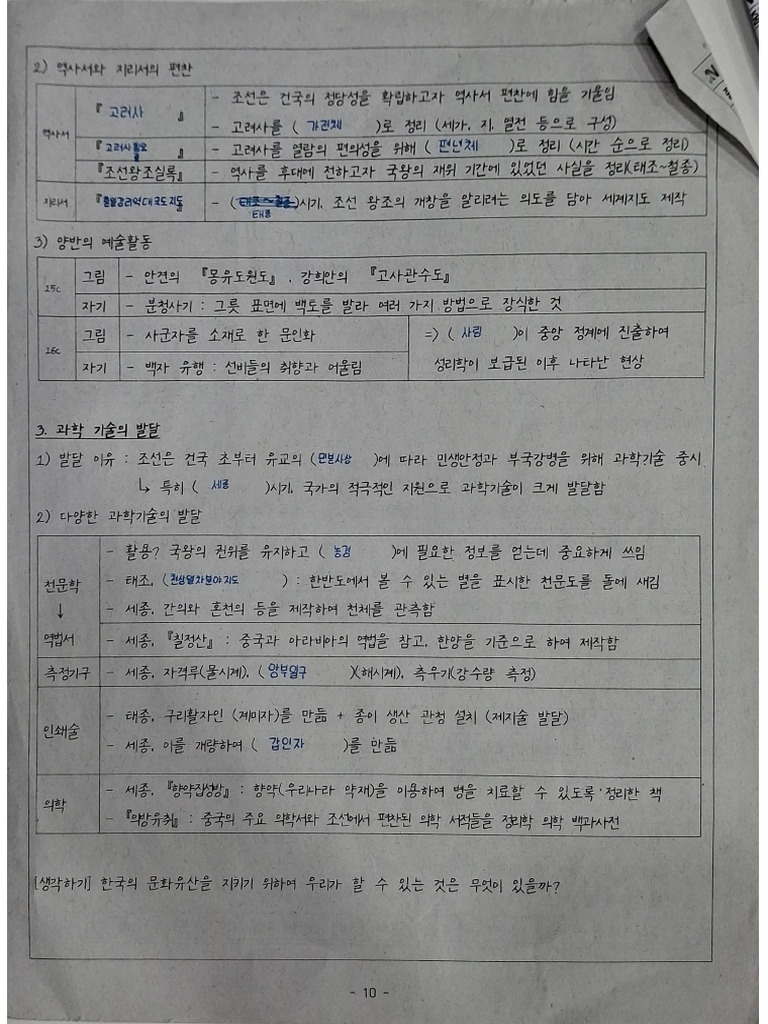 2) 역사서와 지리서의 편찬
역사서
『 고려사 』
- 조선은 건국의 정당성을 확립하고자 역사서 편찬에 힘을 기울임
- 고려사를 ( 기전체 )로 정리 (세가, 지, 열전 등으로 구성)
『 고려사절요 』
- 고려사를 열람의 편의성을 위해 ( 편년체 )로 정리 (시간 순으로 정리)
『조선왕조실록』
- 역사를 후대에 전하고자 국왕의 재위 기간에 있었던 사실을 정리(태조~철종)
지리서
『혼일강리역대국도지도』
- ( 태조~철종 )시기, 조선 왕조의 개창을 알리려는 의도를 담아 세계지도 제작
태종
3) 양반의 예술활동
15c
그림
- 안견의 『몽유도원도』, 강희안의 『고사관수도』
자기
- 분청사기 : 그릇 표면에 백토를 발라 여러 가지 방법으로 장식한 것
16c
그림
- 사군자를 소재로 한 문인화
자기
- 백자 유행 : 선비들의 취향과 어울림
=> ( 사림 )이 중앙 정계에 진출하여
성리학이 보급된 이후 나타난 현상
3. 과학 기술의 발달
1) 발달 이유 : 조선은 건국 초부터 유교의 ( 민본사상 )에 따라 민생안정과 부국강병을 위해 과학기술 중시
↳ 특히 ( 세종 )시기, 국가의 적극적인 지원으로 과학기술이 크게 발달함
2) 다양한 과학기술의 발달
천문학
↓
역법서
- 활용? 국왕의 권위를 유지하고 ( 농경 )에 필요한 정보를 얻는데 중요하게 쓰임
- 태조, ( 천상열차분야지도 ) : 한반도에서 볼 수 있는 별을 표시한 천문도를 돌에 새김
- 세종, 간의와 혼천의 등을 제작하여 천체를 관측함
- 세종, 『칠정산』 : 중국과 아라비아의 역법을 참고, 한양을 기준으로 하여 제작함
측정기구
- 세종, 자격루(물시계), ( 앙부일구 )(해시계), 측우기(강수량 측정)
인쇄술
- 태종, 구리활자인 (계미자)를 만듦 + 종이 생산 관청 설치 (제지술 발달)
- 세종, 이를 개량하여 ( 갑인자 )를 만듦
의학
- 세종, 『향약집성방』 : 향약(우리나라 약재)을 이용하여 병을 치료할 수 있도록 정리한 책
- 『의방유취』 : 중국의 주요 의학서와 조선에서 편찬된 의학 서적들을 정리학 의학 백과사전
[생각하기] 한국의 문화유산을 지키기 위하여 우리가 할 수 있는 것은 무엇이 있을까?
- 10 -